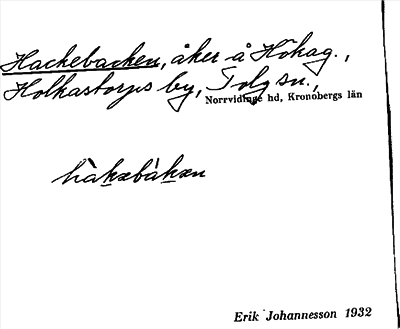 Hackebacken, åker å Hökag.,
Holkastorps by, Tolg sn.,
Norrvidinge hd, Kronobergs län
hàkæbàkæn
Erik Johannesson 1932